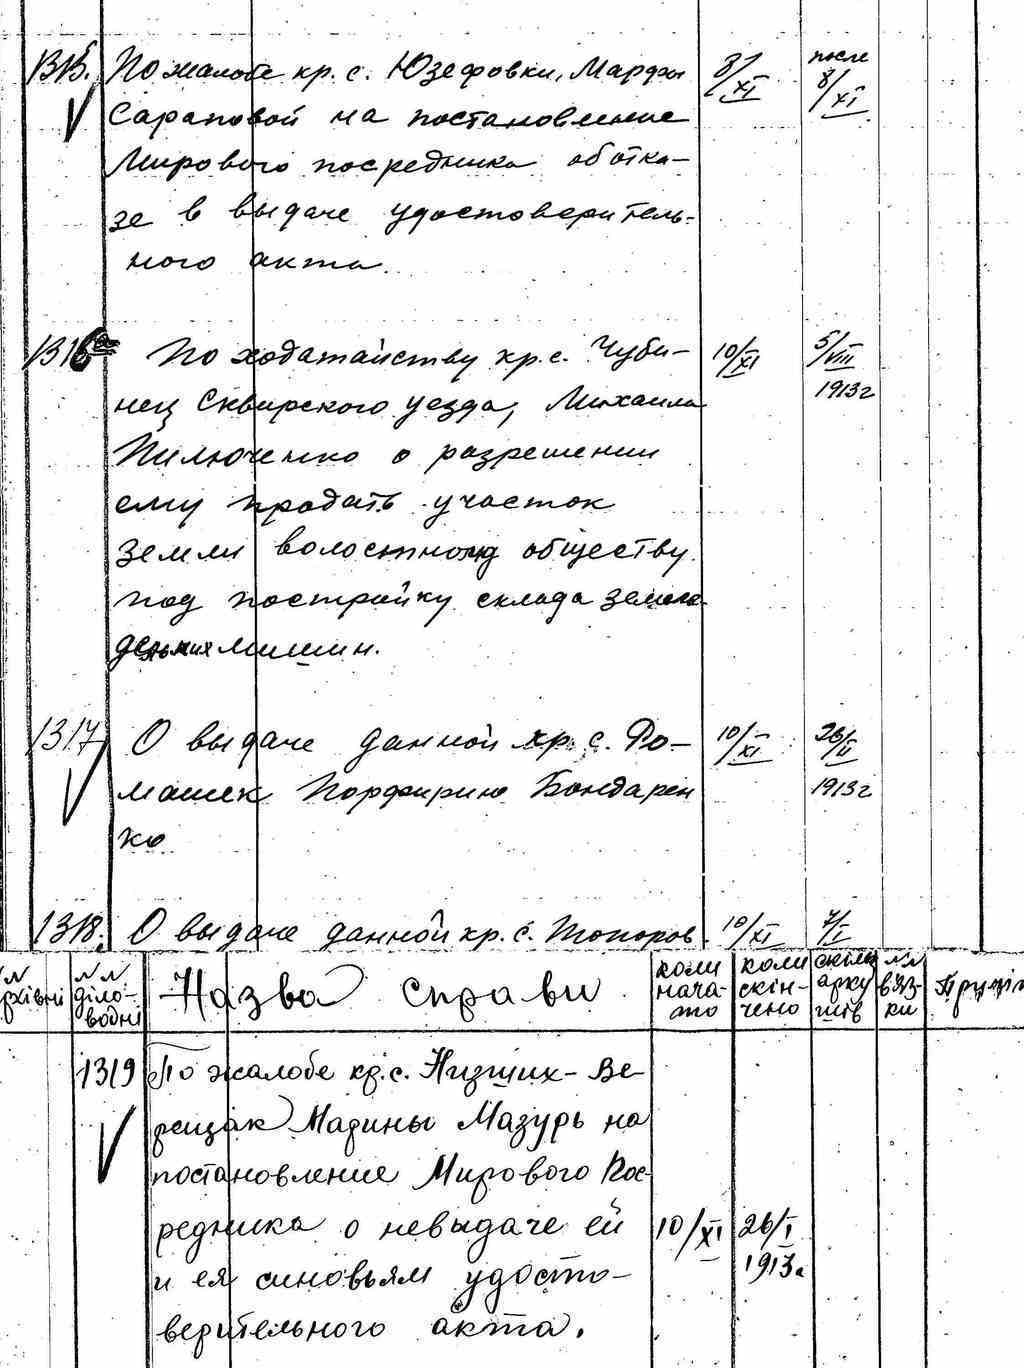 1315. По жалобе кр. с. Юзефовки, Марфы 8/XI после 8/XI
Сараповой на постановление
Мирового посредника об отка-
зе в выдаче удостоверитель-
ного акта.
1316а По ходатайству кр. с. Чуби- 10/XI 5/VIII
нец Сквирского уезда, Михаила 1913 г
Пилюченко о разрешении
ему продать участок
земли волостному обществу
под постройку склада земле-
дельних машин.
1317 О выдаче данной кр. с. Ро- 10/XI 26/II
машек Порфирию Бондарен 1913 г
ко
1318. О выдаче данной кр. с. Топоров 10/XI 7/I
№№ архівні №№ діло-водні Назва справи коли нача-то коли скін-чено скільк арку шів №№ вяз-ки
1319 По жалобе кр. с. Низших-Ве-
рещак Марины Мазурь на
постановление Мирового Пос-
редника о невыдаче ей 10/XI 26/I
и ея синовьям удосто- 1913 г
верительного акта.